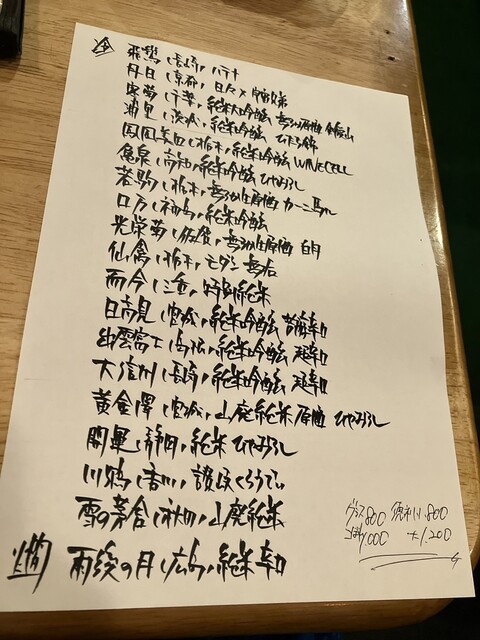 飛鸞 長崎 ハラナ
月日 京都 日々×
寒菊 千葉 純米大吟醸 無ろ過原酒
浦里 茨城 純米吟醸 ひたち錦
鳳凰美田 栃木 純米吟醸 WINECELL
亀泉 高知 純米吟醸 ひやおろし
若駒 栃木 無ろ過生原酒 カーニ馬ル
ロ万 福島 純米吟醸
光栄菊 佐賀 無ろ過生原酒 白月
仙禽 栃木 モダン 無垢
而今 三重 特別純米
日高見 宮城 純米吟醸 芳醇辛口
出雲富士 島根 純米吟醸 超辛口
大信州 長崎 純米吟醸 超辛口
黄金澤 宮城 山廃純米原酒 ひやおろし
開運 静岡 純米 ひやおろし
川鶴 香川 讃岐くらうでぃ
雪の茅舎 秋田 山廃純米
燗 雨後の月 広島 純米辛口
グラス800 徳利小800
1,000 大1,200